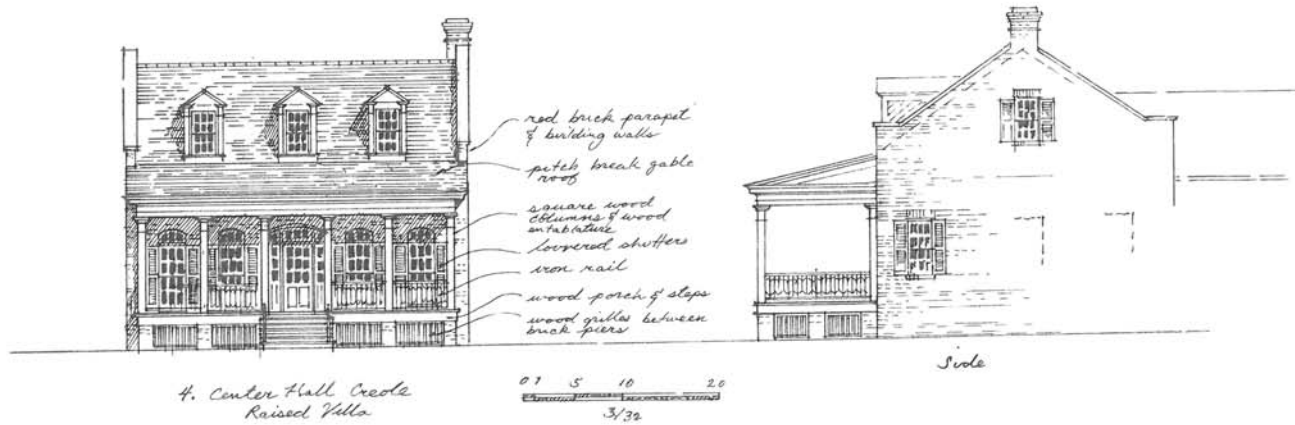 red brick parapet
& building walls
pitch break gable
roof
square wood
columns & wood
entablature
louvered shutters
iron rail
wood porch & steps
wood grilles between
brick piers
Side
4. Center Hall Creole
Raised Villa
0 1 5 10 20
3/32